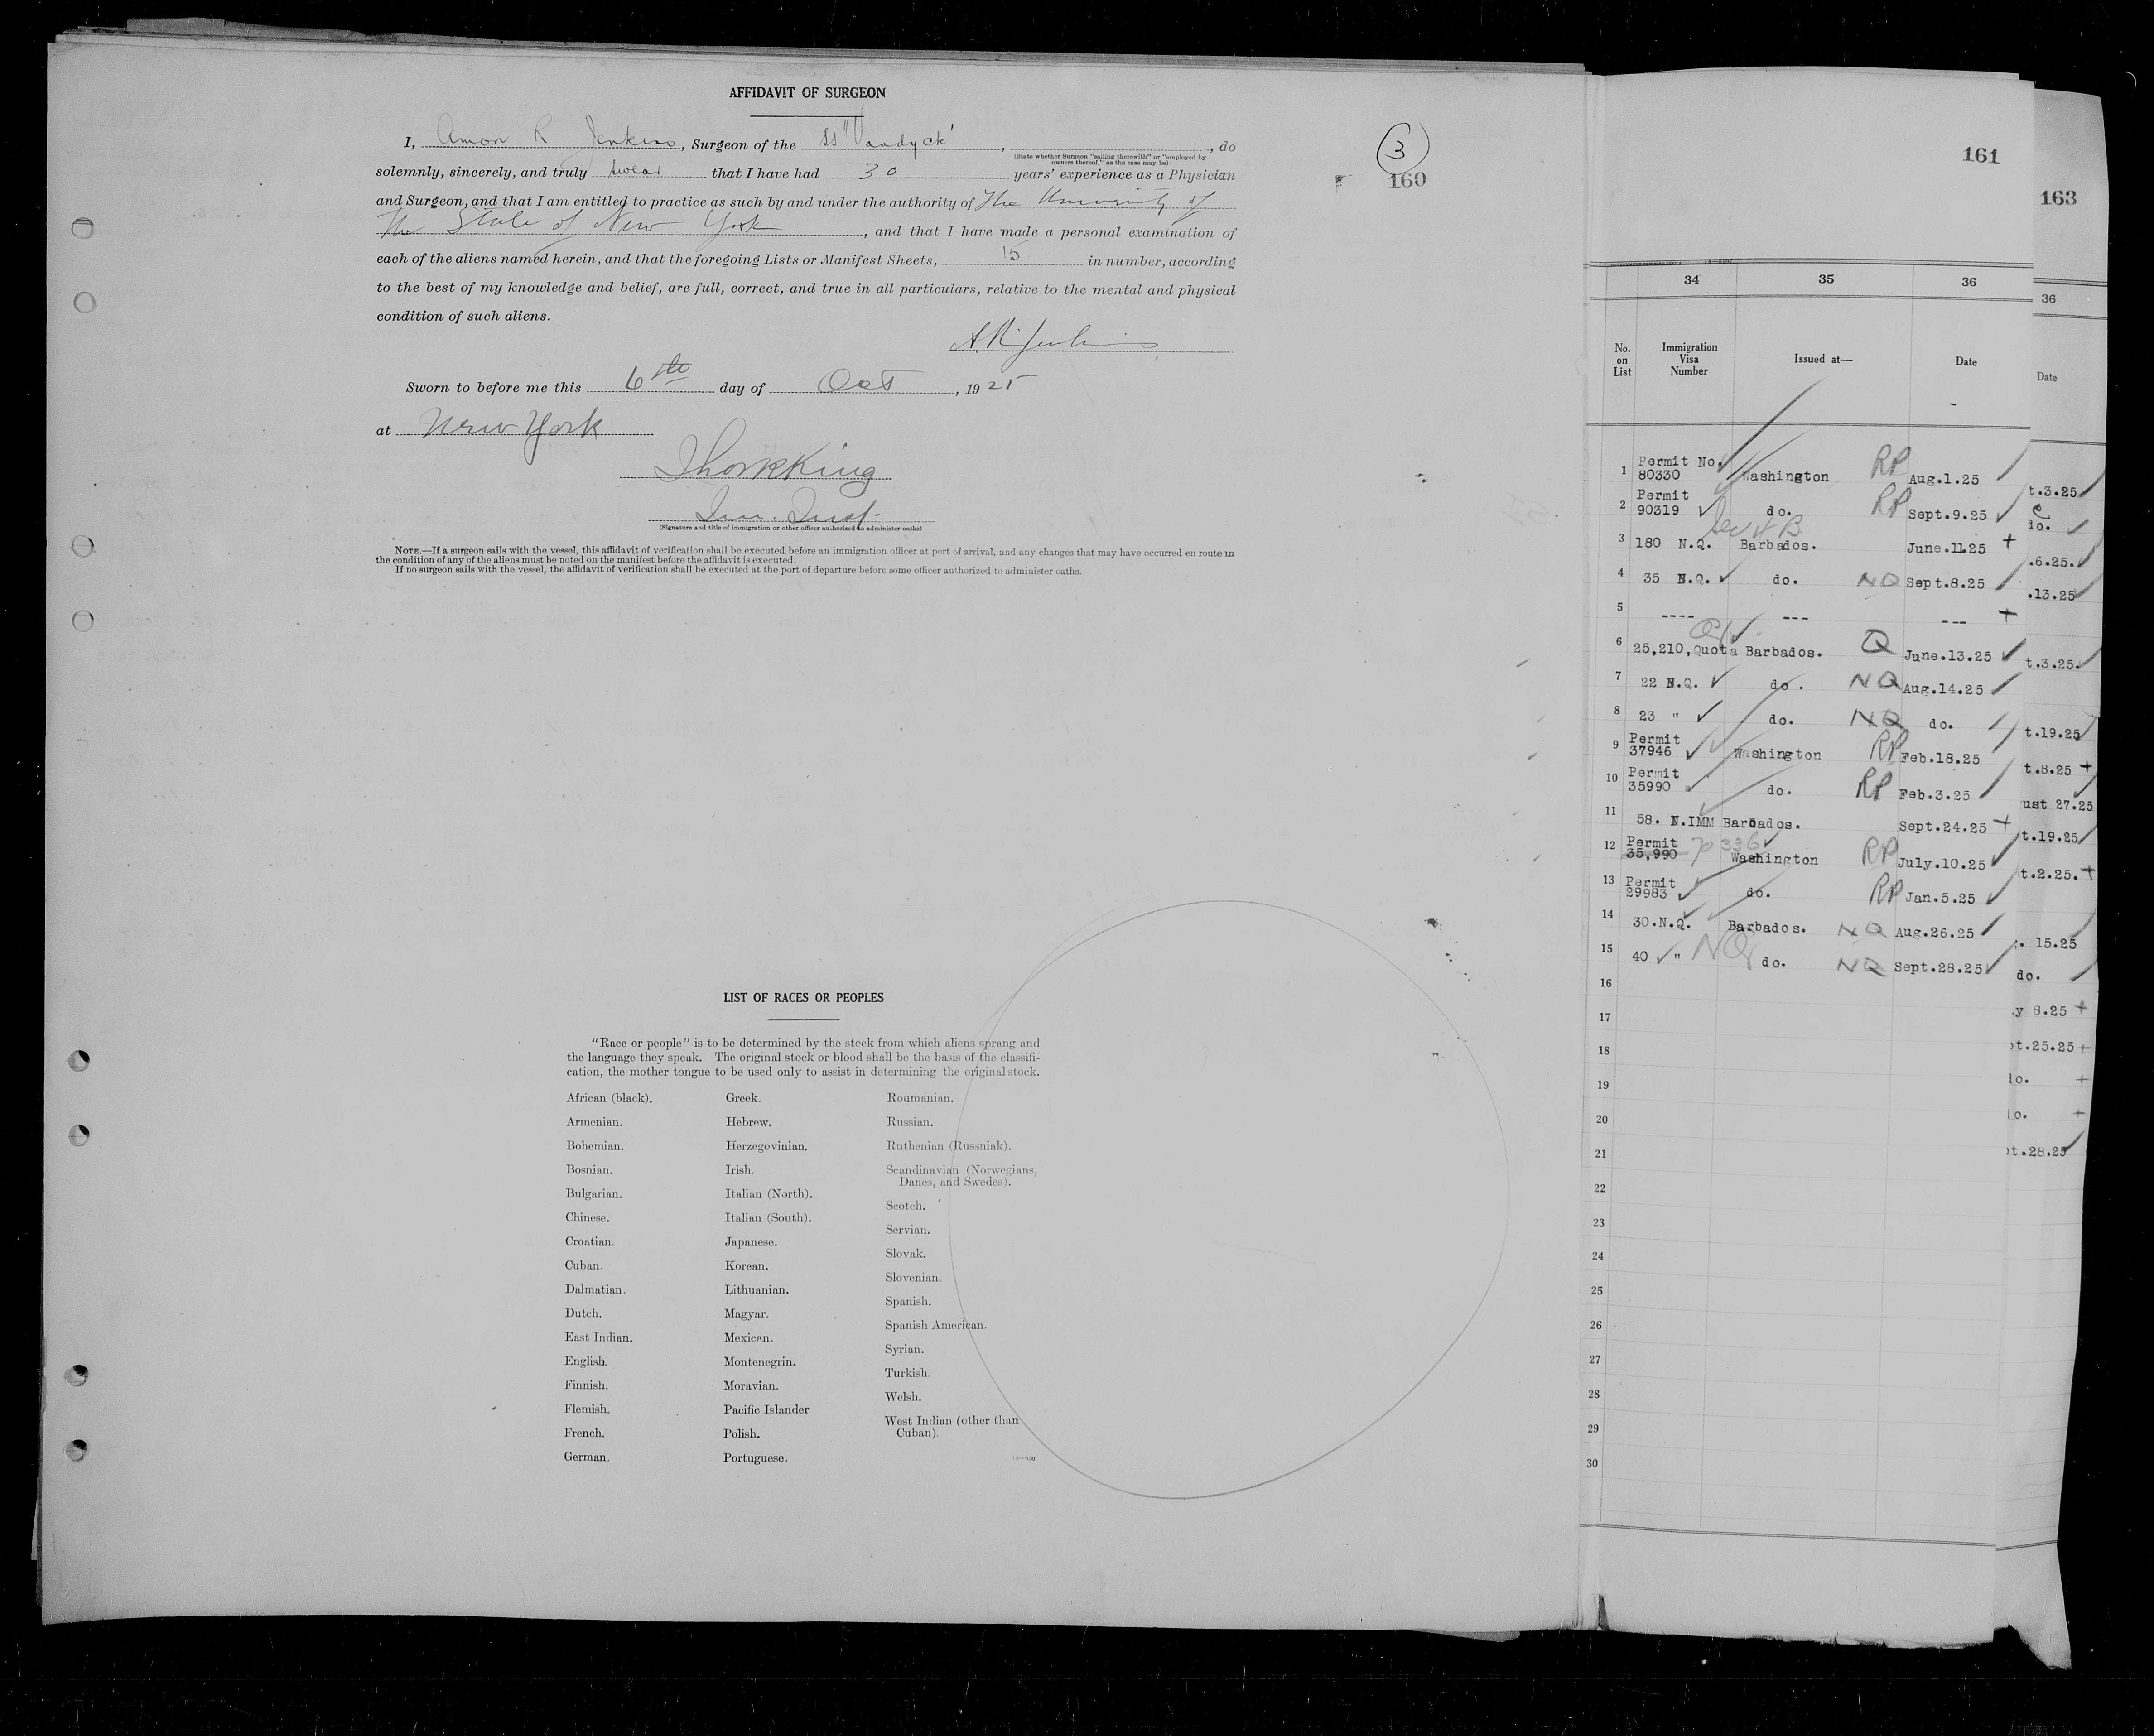 AFFIDAVIT OF SURGEON
I, Amon R Jenkins, Surgeon of the SS "Vandyck", , do
(State whether Surgeon "sailing therewith" or "employed by
owners thereof," as the case may be)
solemnly, sincerely, and truly swear that I have had 30 years' experience as a Physician
and Surgeon, and that I am entitled to practice as such by and under the authority of The University of
The State of New York, and that I have made a personal examination of
each of the aliens named herein, and that the foregoing Lists or Manifest Sheets, 15 in number, according
to the best of my knowledge and belief, are full, correct, and true in all particulars, relative to the mental and physical
condition of such aliens.
A. R. Jenkins
Sworn to before me this 6th day of Oct, 1925
at New York
King
(Signature and title of immigration or other officer authorized to administer oaths)
NOTE.—If a surgeon sails with the vessel, this affidavit of verification shall be executed before an immigration officer at port of arrival, and any changes that may have occurred en route in
the condition of any of the aliens must be noted on the manifest before the affidavit is executed.
If no surgeon sails with the vessel, the affidavit of verification shall be executed at the port of departure before some officer authorized to administer oaths.
3
160
LIST OF RACES OR PEOPLES
"Race or people" is to be determined by the stock from which aliens sprang and
the language they speak. The original stock or blood shall be the basis of the classifi-
cation, the mother tongue to be used only to assist in determining the original stock.
African (black).
Armenian.
Bohemian.
Bosnian.
Bulgarian.
Chinese.
Croatian.
Cuban.
Dalmatian.
Dutch.
East Indian.
English.
Finnish.
Flemish.
French.
German.
Greek.
Hebrew.
Herzegovinian.
Irish.
Italian (North).
Italian (South).
Japanese.
Korean.
Lithuanian.
Magyar.
Mexican.
Montenegrin.
Moravian.
Pacific Islander
Polish.
Portuguese.
Roumanian.
Russian.
Ruthenian (Russniak).
Scandinavian (Norwegians,
Danes, and Swedes).
Scotch.
Servian.
Slovak.
Slovenian.
Spanish.
Spanish American.
Syrian.
Turkish.
Welsh.
West Indian (other than
Cuban).
161
34 35 36
No. on List
Immigration Visa Number
Issued at—
Date
1 Permit No. 80330 Washington RP Aug.1.25
2 Permit 90319 do. RP Sept.9.25
3 180 N.Q. Barbados. June.11.25
4 35 N.Q. do. NQ Sept.8.25
5 ---- --- ---
6 25,210,Quota Barbados. Q June.13.25
7 22 N.Q. do. NQ Aug.14.25
8 23 " do. NQ do.
9 Permit 37946 Washington RP Feb.18.25
10 Permit 35990 do. RP Feb.3.25
11 58. N.IMM Barbados. Sept.24.25
12 Permit 35,990 Washington RP July.10.25
13 Permit 29983 do. RP Jan.5.25
14 30.N.Q. Barbados. NQ Aug.26.25
15 40 " NQ do. NQ Sept.28.25
16
17
18
19
20
21
22
23
24
25
26
27
28
29
30
163
36
Date
t.3.25
do.
.6.25.
.13.25
t.3.25.
t.19.25
t.8.25
ust 27.25
t.19.25
t.2.25.
. 15.25
do.
y 8.25
t.25.25
do.
do.
t.28.25